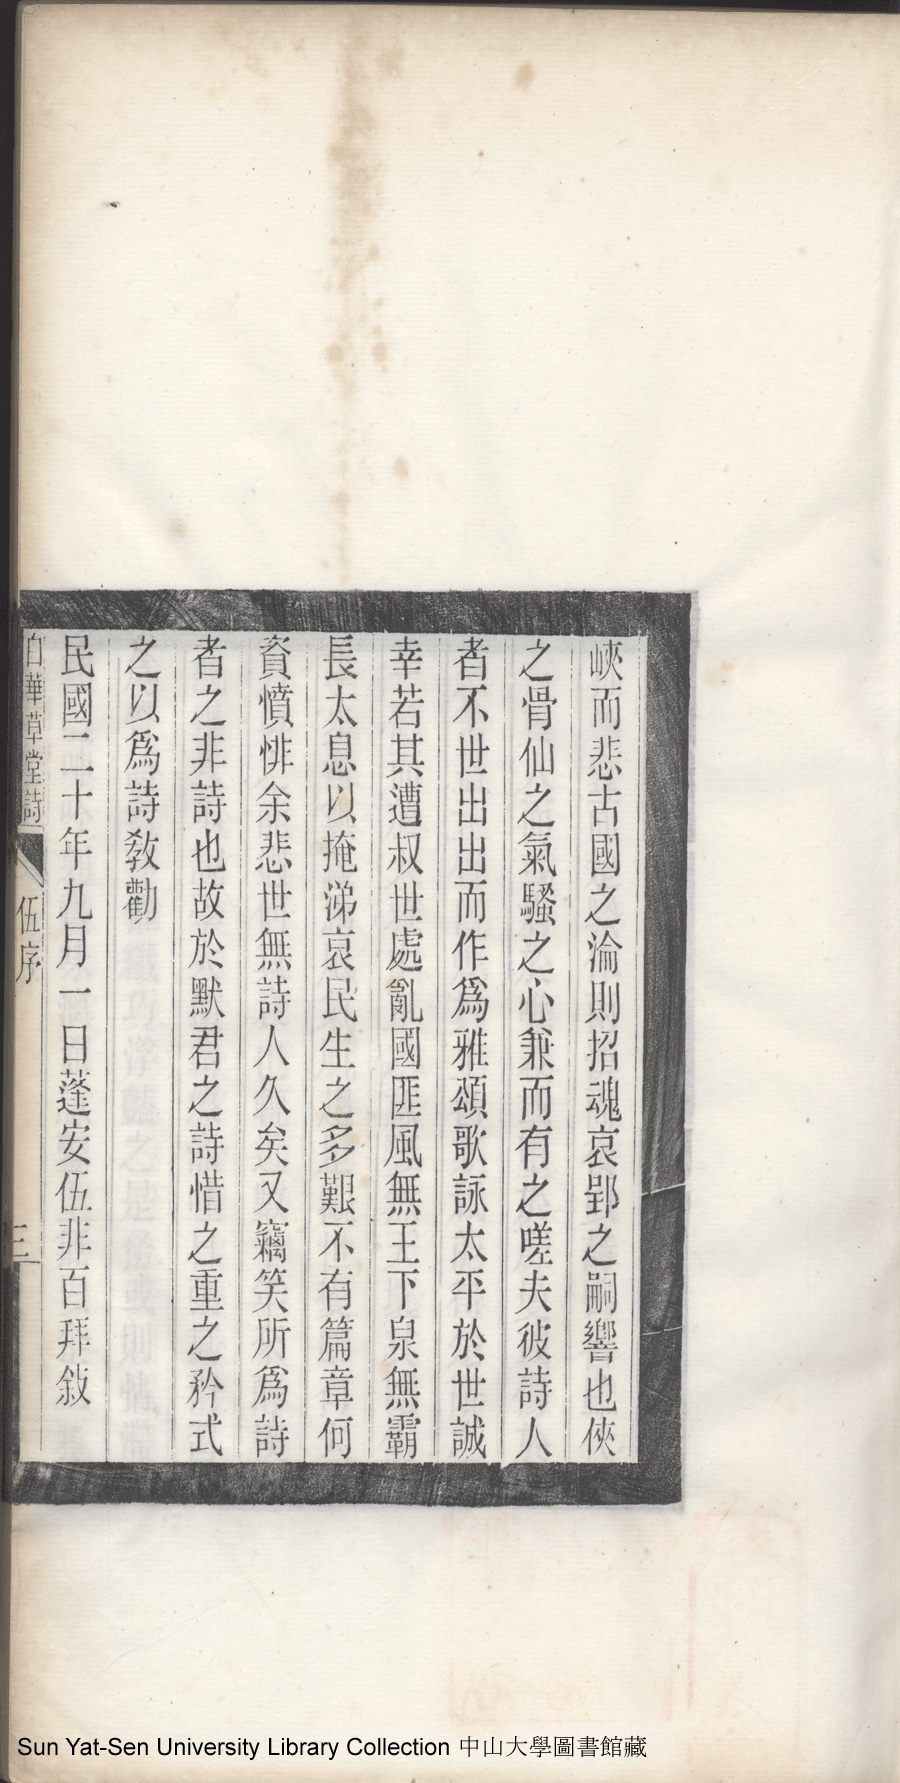 峽而悲古國之淪則招魂哀郢之嗣響也俠
之骨仙之氣騷之心兼而有之嗟夫彼詩人
者不世出出而作爲雅頌歌詠太平於世誠
幸若其遭叔世處亂國匪風無王下泉無霸
長太息以掩涕哀民生之多艱不有篇章何
資憤悱余悲世無詩人久矣又竊笑所爲詩
者之非詩也故於默君之詩惜之重之矜式
之以爲詩教勸
民國二十年九月一日蓬安伍非百拜敍
白華草堂詩
伍序
三
Sun Yat-Sen University Library Collection 中山大學圖書館藏